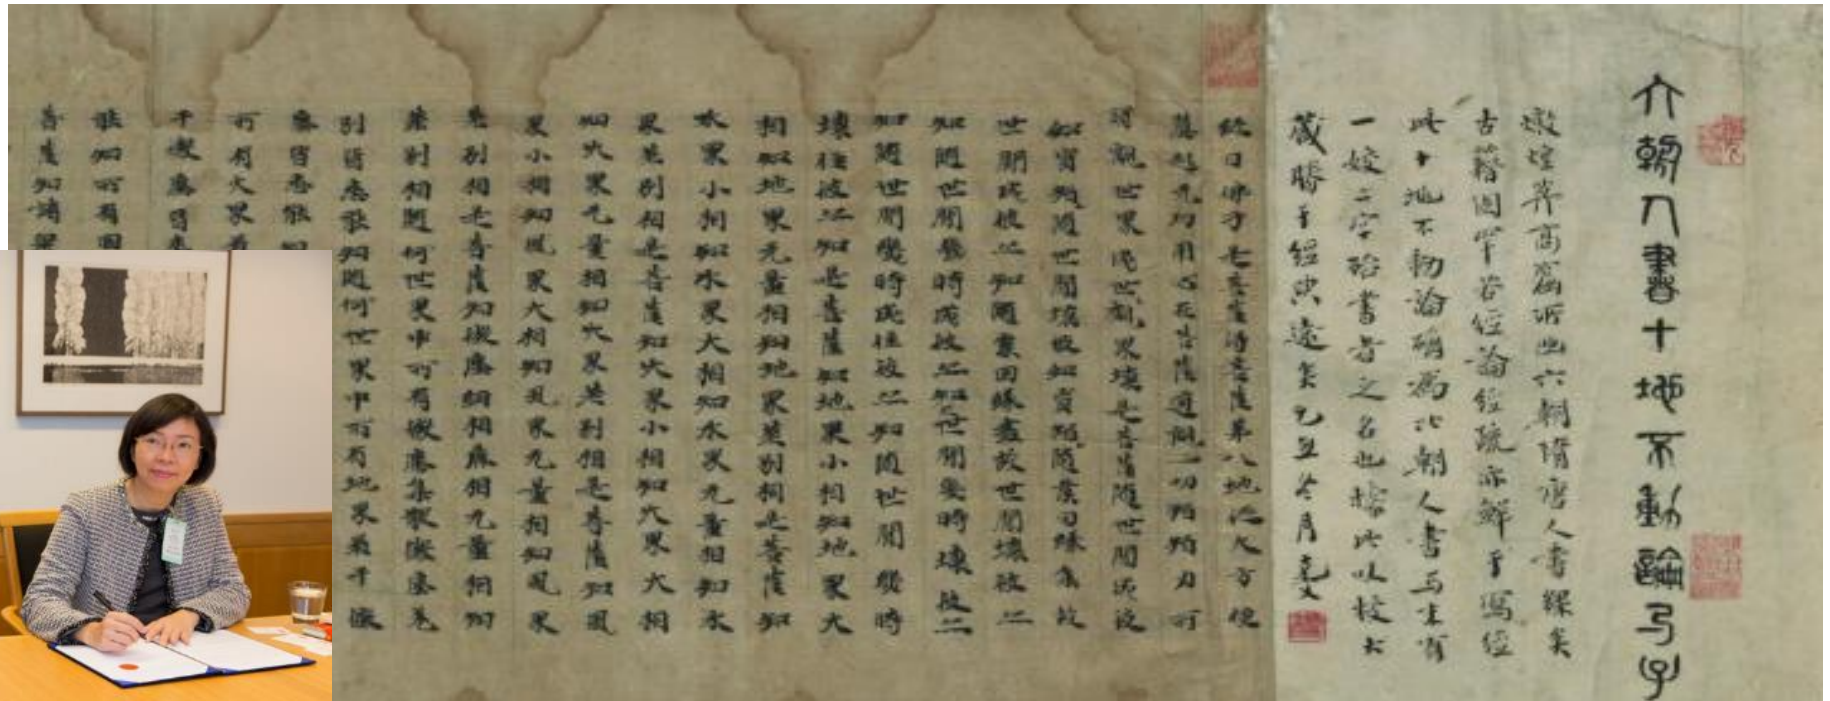 六朝人書十地不動論弓子
敦煌莽高窟所出六朝隋唐人書夥矣
古籍固罕若經論經疏亦鮮于寫經
此十地不動論碻為北朝人書焉末有
一校二字殆書者之名也據此以校大
藏勝于經典遠矣乙丑冬月克文
經曰佛子是菩薩得菩薩第八地從大方便
慧起无功用心在菩薩道觀一切智智力所
謂觀世界成世觀界壞是菩薩隨世間成彼
如實知隨世間壞彼如實知隨業習緣集故
世間成彼亦知隨業因緣盡故世間壞彼亦
知隨世間幾時成彼亦知世間幾時壞彼亦
知隨世間幾時成住彼亦知隨世間幾時
壞住彼亦知是菩薩知地界小相知地界大
相知地界无量相知地界差別相是菩薩知
水界小相知水界大相知水界无量相知水
界差別相是菩薩知火界小相知火界大相
知火界无量相知火界差別相是菩薩知風
界小相知風界大相知風界无量相知風界
差別相是菩薩知微塵細相麁相无量相知
差別相隨何世界中所有微塵集散微塵差
別皆悉能知隨何世界中所有地界若干微
塵皆悉能知
所有火界若
干微塵皆悉
能知所有國
菩薩知諸眾